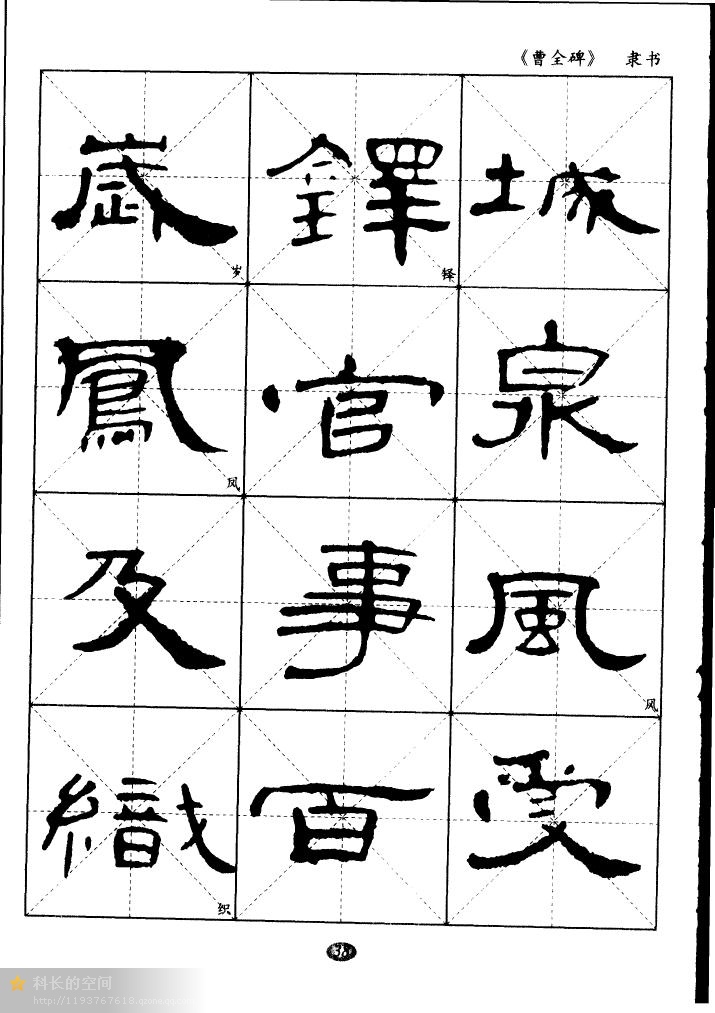 《曹全碑》 隶书
歲 鐸 城
岁 铎
鳳 官 泉
凤
及 事 風
风
織 百 受
织
38
科长的空间